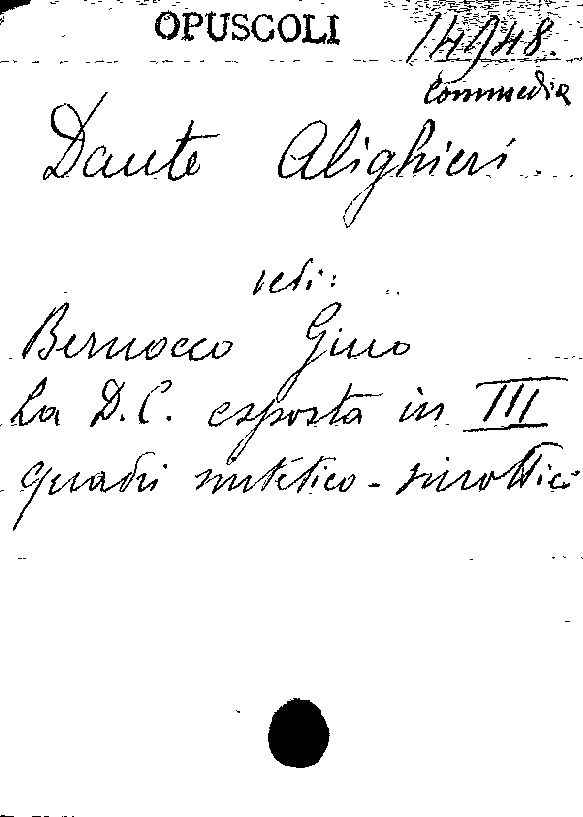 OPUSCOLI
14948.
Commedia
Dante Alighieri.
vedi:
Bernocco Gino
La D.C. esposta in III
quadri sintetico-sinottici